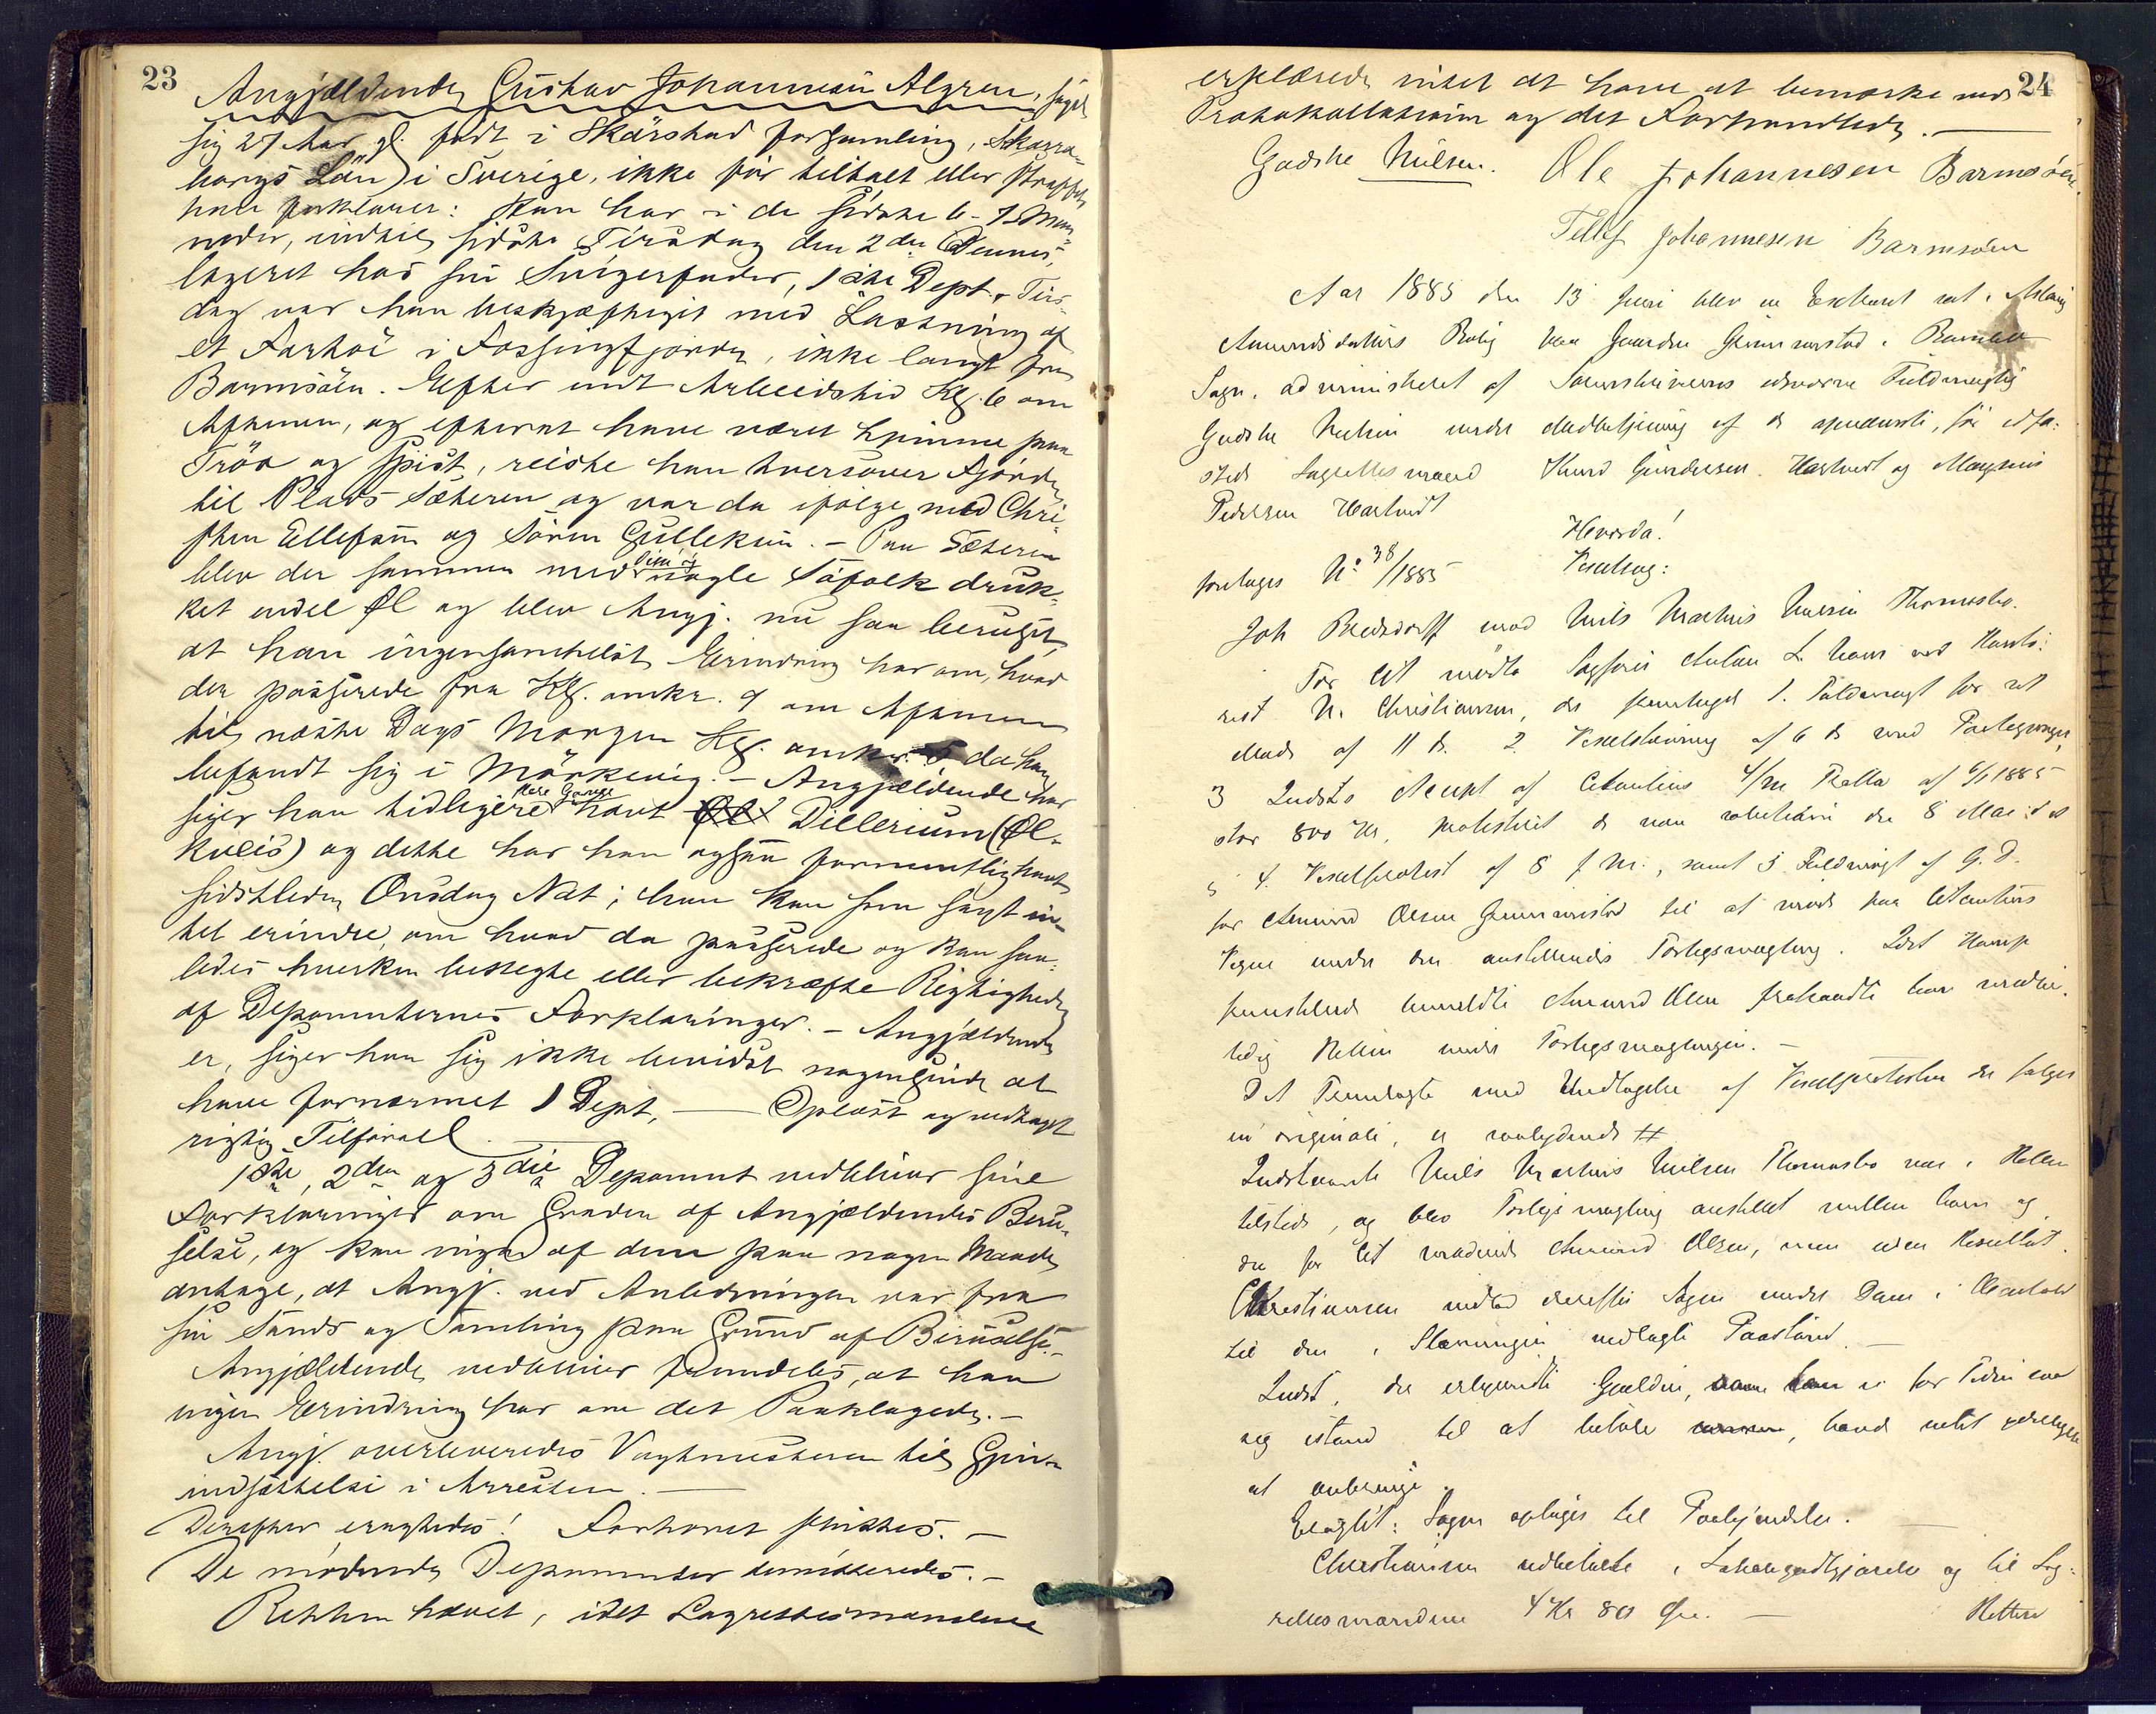 23
Angjældende, Gustav Johannesen Algren, siger
sig 27 Aar gl. født i Skärstad forsamling, Skara-
borgs Län) i Sverige, ikke før tiltalt eller straffet
han forklarer: Han har i de sidste 6-7 Maa-
neder, indtil sidste Tirsdag den 2den dennes,
logeret hos sin Svigerfader, 1ste Dept., Tirs-
dag var han beskjæftiget med Lastning af
et Fartöi i Fossingfjorden, ikke langt fra
Barmsöen. Efter endt Arbeidstid Kl. 6 om
Aftenen, og efterat have været hjemme paa
Fröa og spist, reiste han tversover Fjorden
til Plads Sæteren og var da ifølge med Chri-
sten Ellefsen og Sören Gulleksen. – Paa Sæteren
blev der sammen med nogle Söfolk druk-
ket endel Øl og blev Angj. nu saa beruset,
at han ingensomhelst Erindring har om, hvad
der passerede fra Kl. omkr. 9 om Aftenen
til næste Dags Morgen Kl. omkr. 5 da han
befandt sig i Mörkevig. – Angjældende har
siger han tidligere flere Gange havt Øl Dillerium (Øl-
kveis) og dette har han ogsaa formentlig havt
sidstleden Onsdag Nat; han kan som sagt in-
tet erindre, om hvad da passerede og kan saa-
ledes hverken benegte eller bekræfte Rigtigheden
af Deponenternes Forklaringer. – Angjældende
er, siger han sig ikke bevidst nogensinde at
have fornærmet 1 Dept, — Oplæst og vedtaget
rigtig Tilført.
1ste, 2den og 3die Deponent vedbliver sine
Forklaringer om Graden af Angjældendes Beru-
selse, og kan ingen af dem paa nogen Maade
antage, at Angj. ved Anledningen var fra
sin Sands og Samling paa Grund af Beruselse.
Angjældende vedbliver fremdeles, at han
ingen Erindring har om det Paaklagede. –
Angj. overleveredes Vagtmesteren til Gjen-
indsættelse i Arresten.
Derefter eragtedes! Forhøret sluttes. –
De mødende Deponenter demitteredes. –
Retten hævet, idet Lagrettesmændene
24
erklærede intet at have at bemærke ved
Protokollationen og det Forhandlede. —
Godske Nielsen. Ole Johannesen Barmsöen.
Tellef Johannesen Barmsöen
Aar 1885 den 13 Juni blev en Extraret sat i Aslaug
Amundsdatters Bolig paa Gaarden Gunnarstad i Bamble
Sogn, administreret af Sorenskriverens edsvorne Fuldmægtig
Godske Nielsen under Medbetjening af de opnævnte, før edfæ-
stede Lagrettesmænd Knud Gundersen Hartvedt og Magnus
Pedersen Hartvedt
Hvorda!
foretages No 38/1885 Vexelsag:
Joh Bredsdorff mod Niels Mathias Nielsen Thomasbo.
For Cit mødte Sagfører Anton L. Naas ved Konto-
rist N. Christiansen, der fremlagde 1. Fuldmagt for at
møde af 11 ds. 2. Vexelstævning af 6 ds med Paategninger,
3 Indsts Accept af Citantens 4/m Tratta af 6/1 1885
stor 800 Kr, protesteret de non solutione den 8 Mai d. A
4. Vexelprotest af 8 f M., samt 5 Fuldmagt af G. D.
for Amund Olsen Gunnarstad til at møde paa Citantens
Vegne under den anstillende Forligsmægling. Idet Komp
fremstillede bemeldte Amund Olsen
Retten under Forligsmæglingen. –
Det Fremlagte med Undtagelse af Vexelprotesten der følger
in originali, er saalydende ##
Indstævnte Niels Mathias Nielsen Thomasbo var i Retten
tilstede, og blev Forligsmægling anstillet mellem ham og
den for Cit mødende Amund Olsen, men uden Resultat.
Christiansen indlod derefter Sagen under Dom i Henhold
til den i Stævningen nedlagte Paastand. –
Indst, der erkjendte Gjælden, for Tiden var
sig istand til at betale, havde intet yderligere
at anbringe.
Eragtet: Sagen optages til Paakjendelse. —
Christiansen udbetalte i Lokalegodtgjørelse og til Lag-
rettesmændene 4 Kr 80 Øre. — Retten